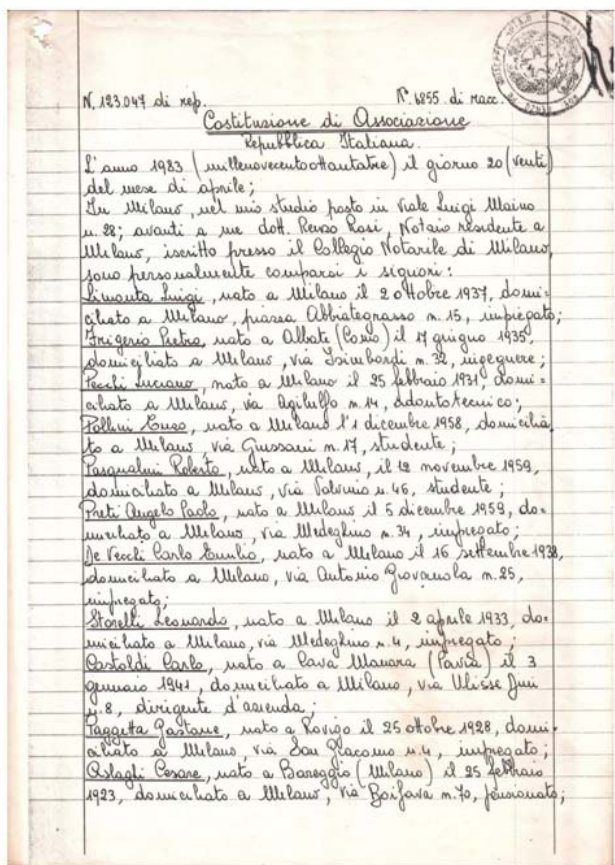 N. 123.047 di rep. N. 6855 di racc.
Costituzione di Associazione
Repubblica Italiana
L'anno 1983 (millenovecentottantatre) il giorno 20 (venti)
del mese di aprile;
In Milano, nel mio studio posto in Viale Luigi Maino
n. 28; avanti a me dott. Renzo Rosi, Notaio residente a
Milano, iscritto presso il Collegio Notarile di Milano,
sono personalmente comparsi i signori:
Limonta Luigi, nato a Milano il 2 ottobre 1937, domi=
ciliato a Milano, piazza Abbiategrasso n. 15, impiegato;
Frigerio Pietro, nato a Albate (Como) il 17 giugno 1935,
domiciliato a Milano, via Isimbardi n. 32, ingegnere;
Pecchi Luciano, nato a Milano il 25 febbraio 1931, domi=
ciliato a Milano, via Agilulfo n. 14, odontotecnico;
Pollini Enzo, nato a Milano l'1 dicembre 1958, domicilia
to a Milano, via Gussani n. 17, studente;
Pasqualini Roberto, nato a Milano, il 12 novembre 1959,
domiciliato a Milano, via n. 46, studente;
Preti Angelo Paolo, nato a Milano il 5 dicembre 1959, do=
miciliato a Milano, via Medeghino n. 34, impiegato;
De Vecchi Carlo Emilio, nato a Milano il 16 settembre 1938,
domiciliato a Milano, via Antonio Giovanola n. 25,
impiegato;
Storelli Leonardo, nato a Milano il 2 aprile 1933, do=
miciliato a Milano, via Medeghino n. 4, impiegato;
Castoldi Carlo, nato a Cava Manara (Pavia) il 3
gennaio 1941, domiciliato a Milano, via Ulisse
n. 8, dirigente d'azienda;
Paggetta Gastone, nato a Rovigo il 25 ottobre 1928, domi=
ciliato a Milano via San Giacomo n. 4, impiegato;
Cesare, nato a Bareggio (Milano) il 25 febbraio
1923, domiciliato a Milano, via Boifava n. 70, pensionato;